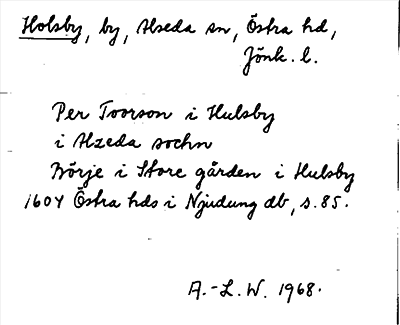 Holsby, by, Alseda sn, Östra hd,
Jönk. l.
Per Toorson i Hulsby
i Alzeda sochn
Börje i Store gården i Hulsby
1604 Östra hds i Njudung db, s. 85.
A.-L. W. 1968.